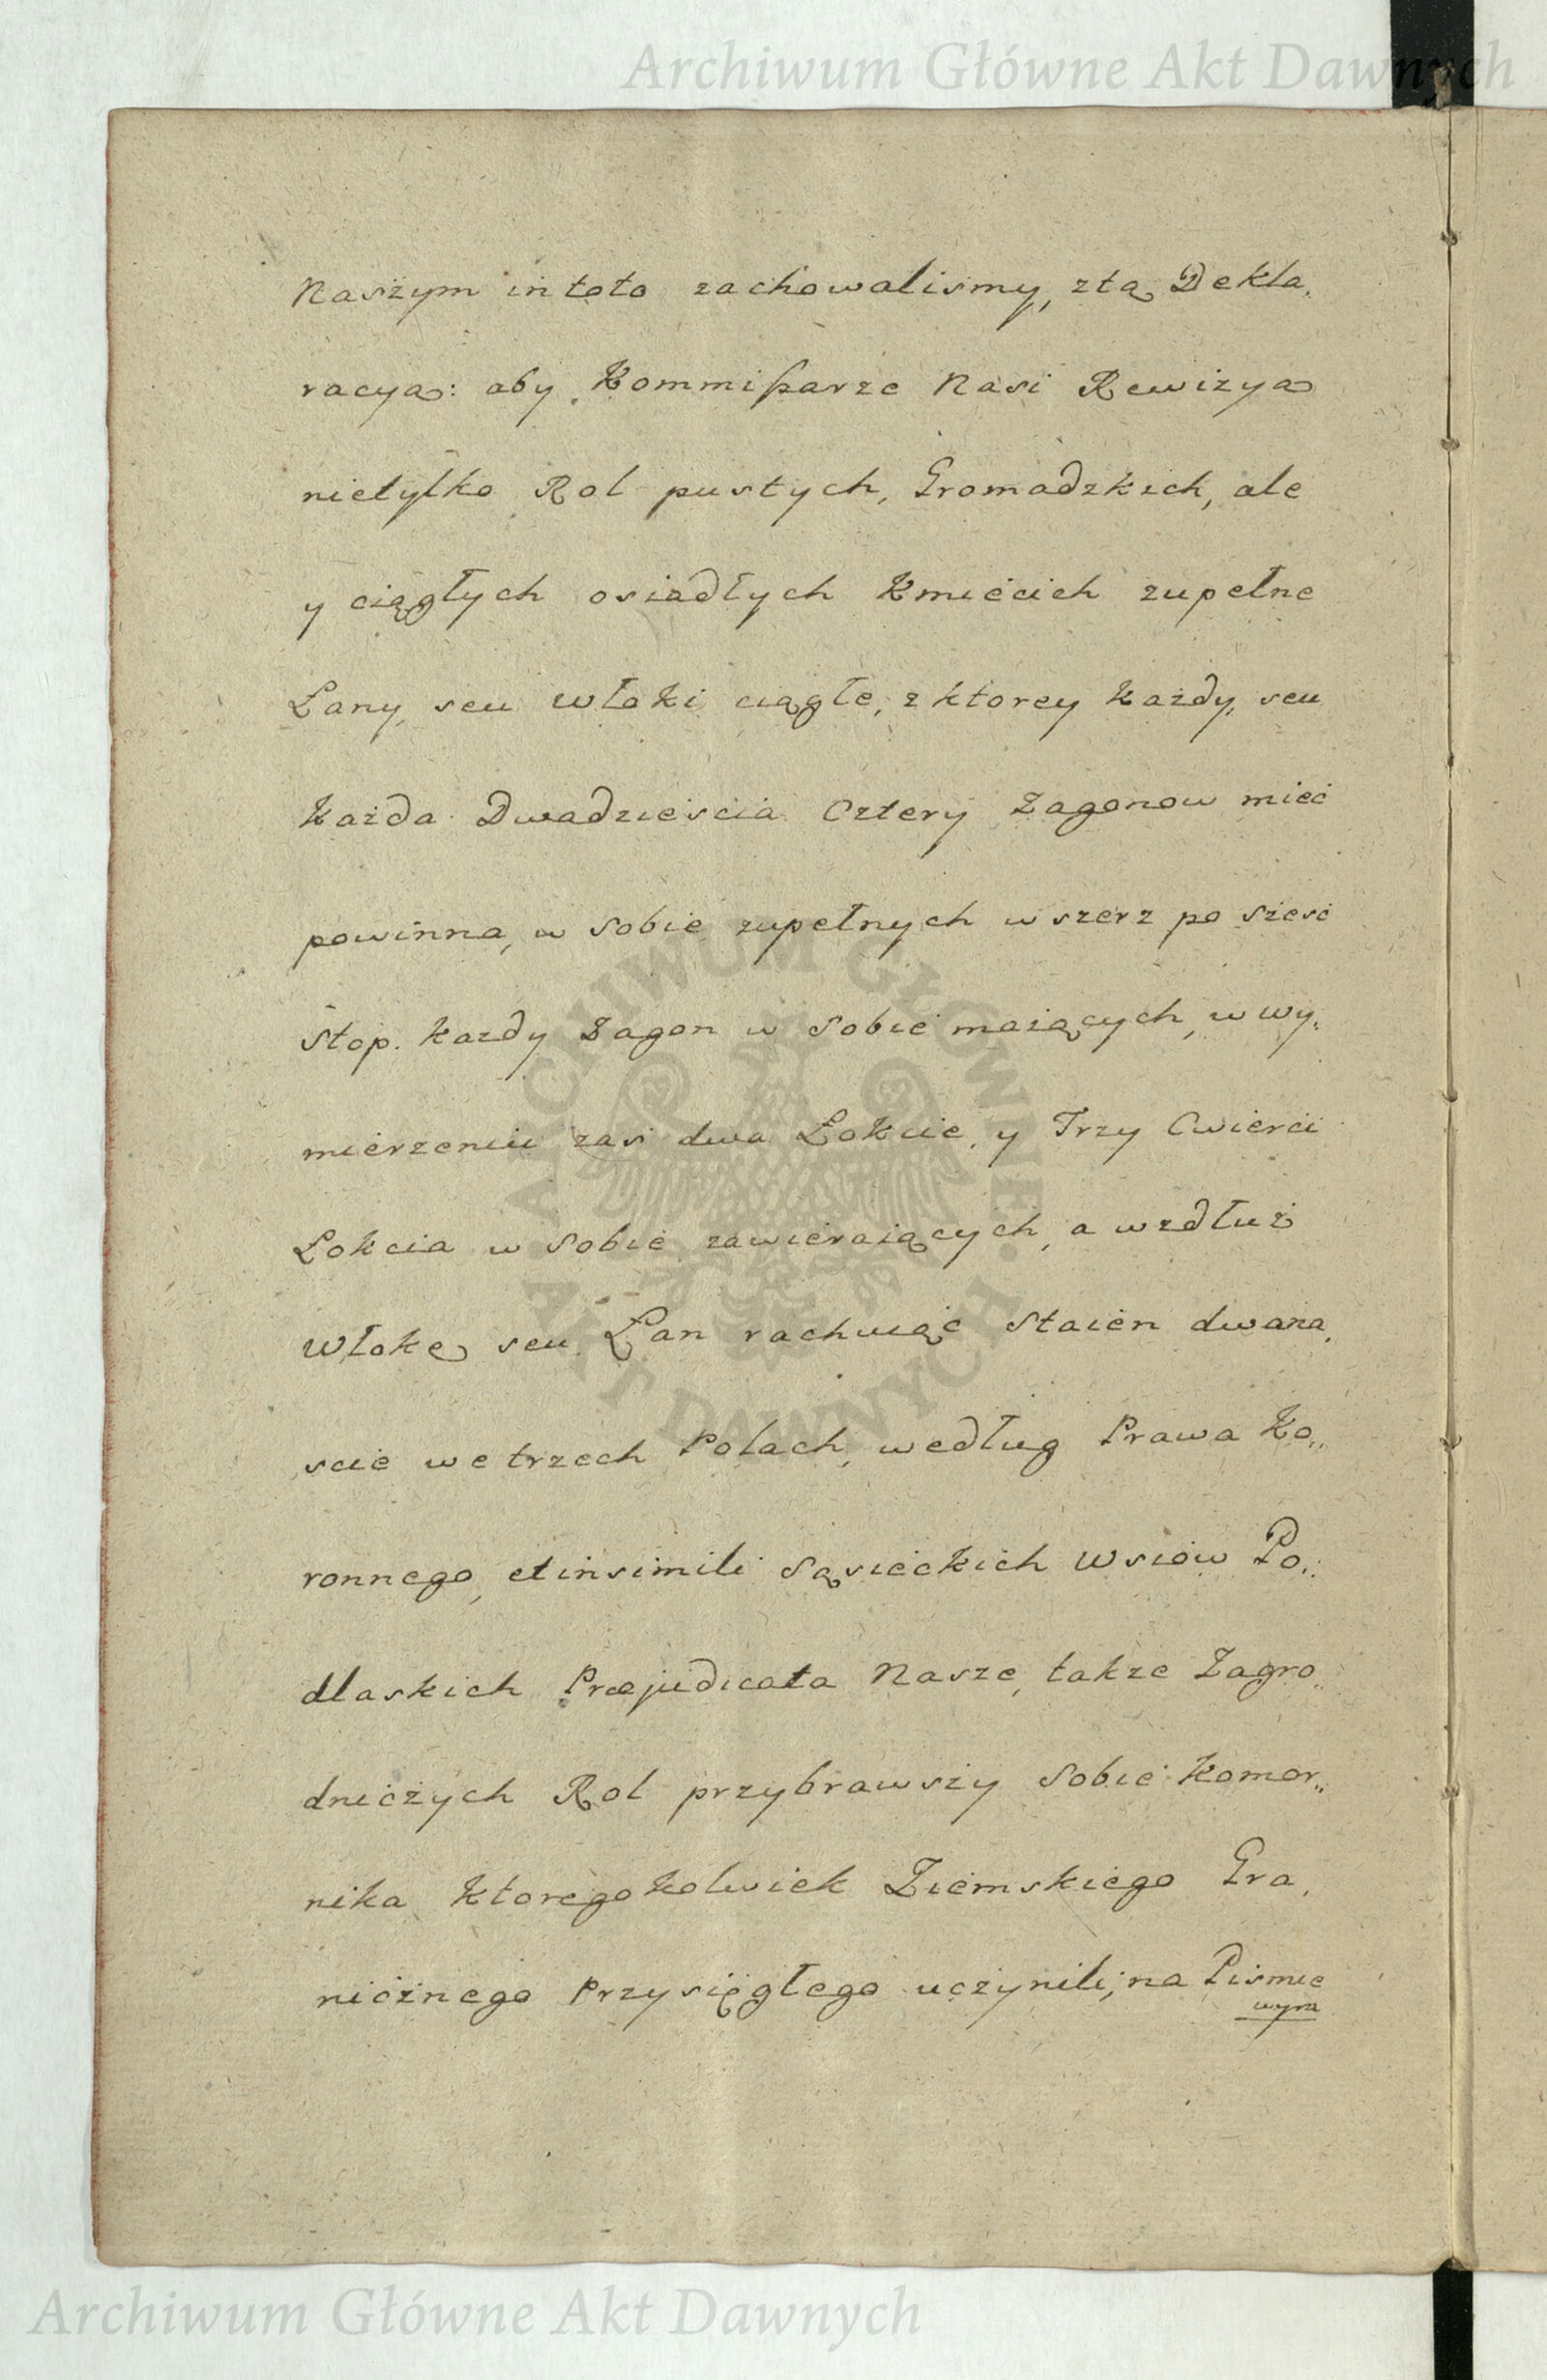 Archiwum Główne Akt Dawnych
Naszym in toto zachowalismy, ztą Dekla,
racyą: aby Kommißarze Nasi Rewizyą
nietylko Rol pustych, Gromadzkich, ale
y ciągłych osiadłych Kmiecich zupełne
Łany, seu Włoki ciągłe, z ktorey każdy, seu
każda Dwadzieścia Cztery Zagonow mieć
powinna, w Sobie zupełnych wszerz po sześć
Stop. każdy Zagon w Sobie maiących, w wy„
mierzeniu zaś dwa Łokcie, y Trzy Cwierci
Łokcia w Sobie zawieraiących, a wzdłuż
Włokę seu Łan rachuiąc Staien dwana,
scie we trzech Polach, według Prawa Ko„
ronnego, et in simili Sąsieckich Wsiow Po„
dlaskich Præjudicata Nasze, także Zagro„
dniczych Rol przybrawszy Sobie Komor„
nika ktoregokolwiek Ziemskiego Gra,
nicznego Przysięgłego uczynili, na Pismie
wyra
ARCHIWUM GŁÓWNE AKT DAWNYCH
Archiwum Główne Akt Dawnych